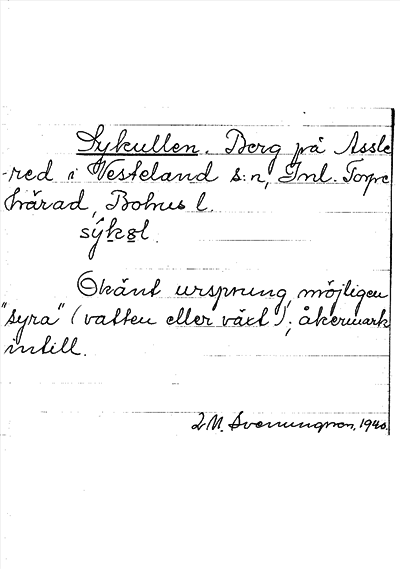 Sykullen. Berg på Assle
-red i Vesteland s:n, Inl. Torpe
härad, Bohus l.
sýkəl.
Okänt ursprung, möjligen
"syra" (vatten eller växt); åkermark
intill.
M. Svenungson, 1940.